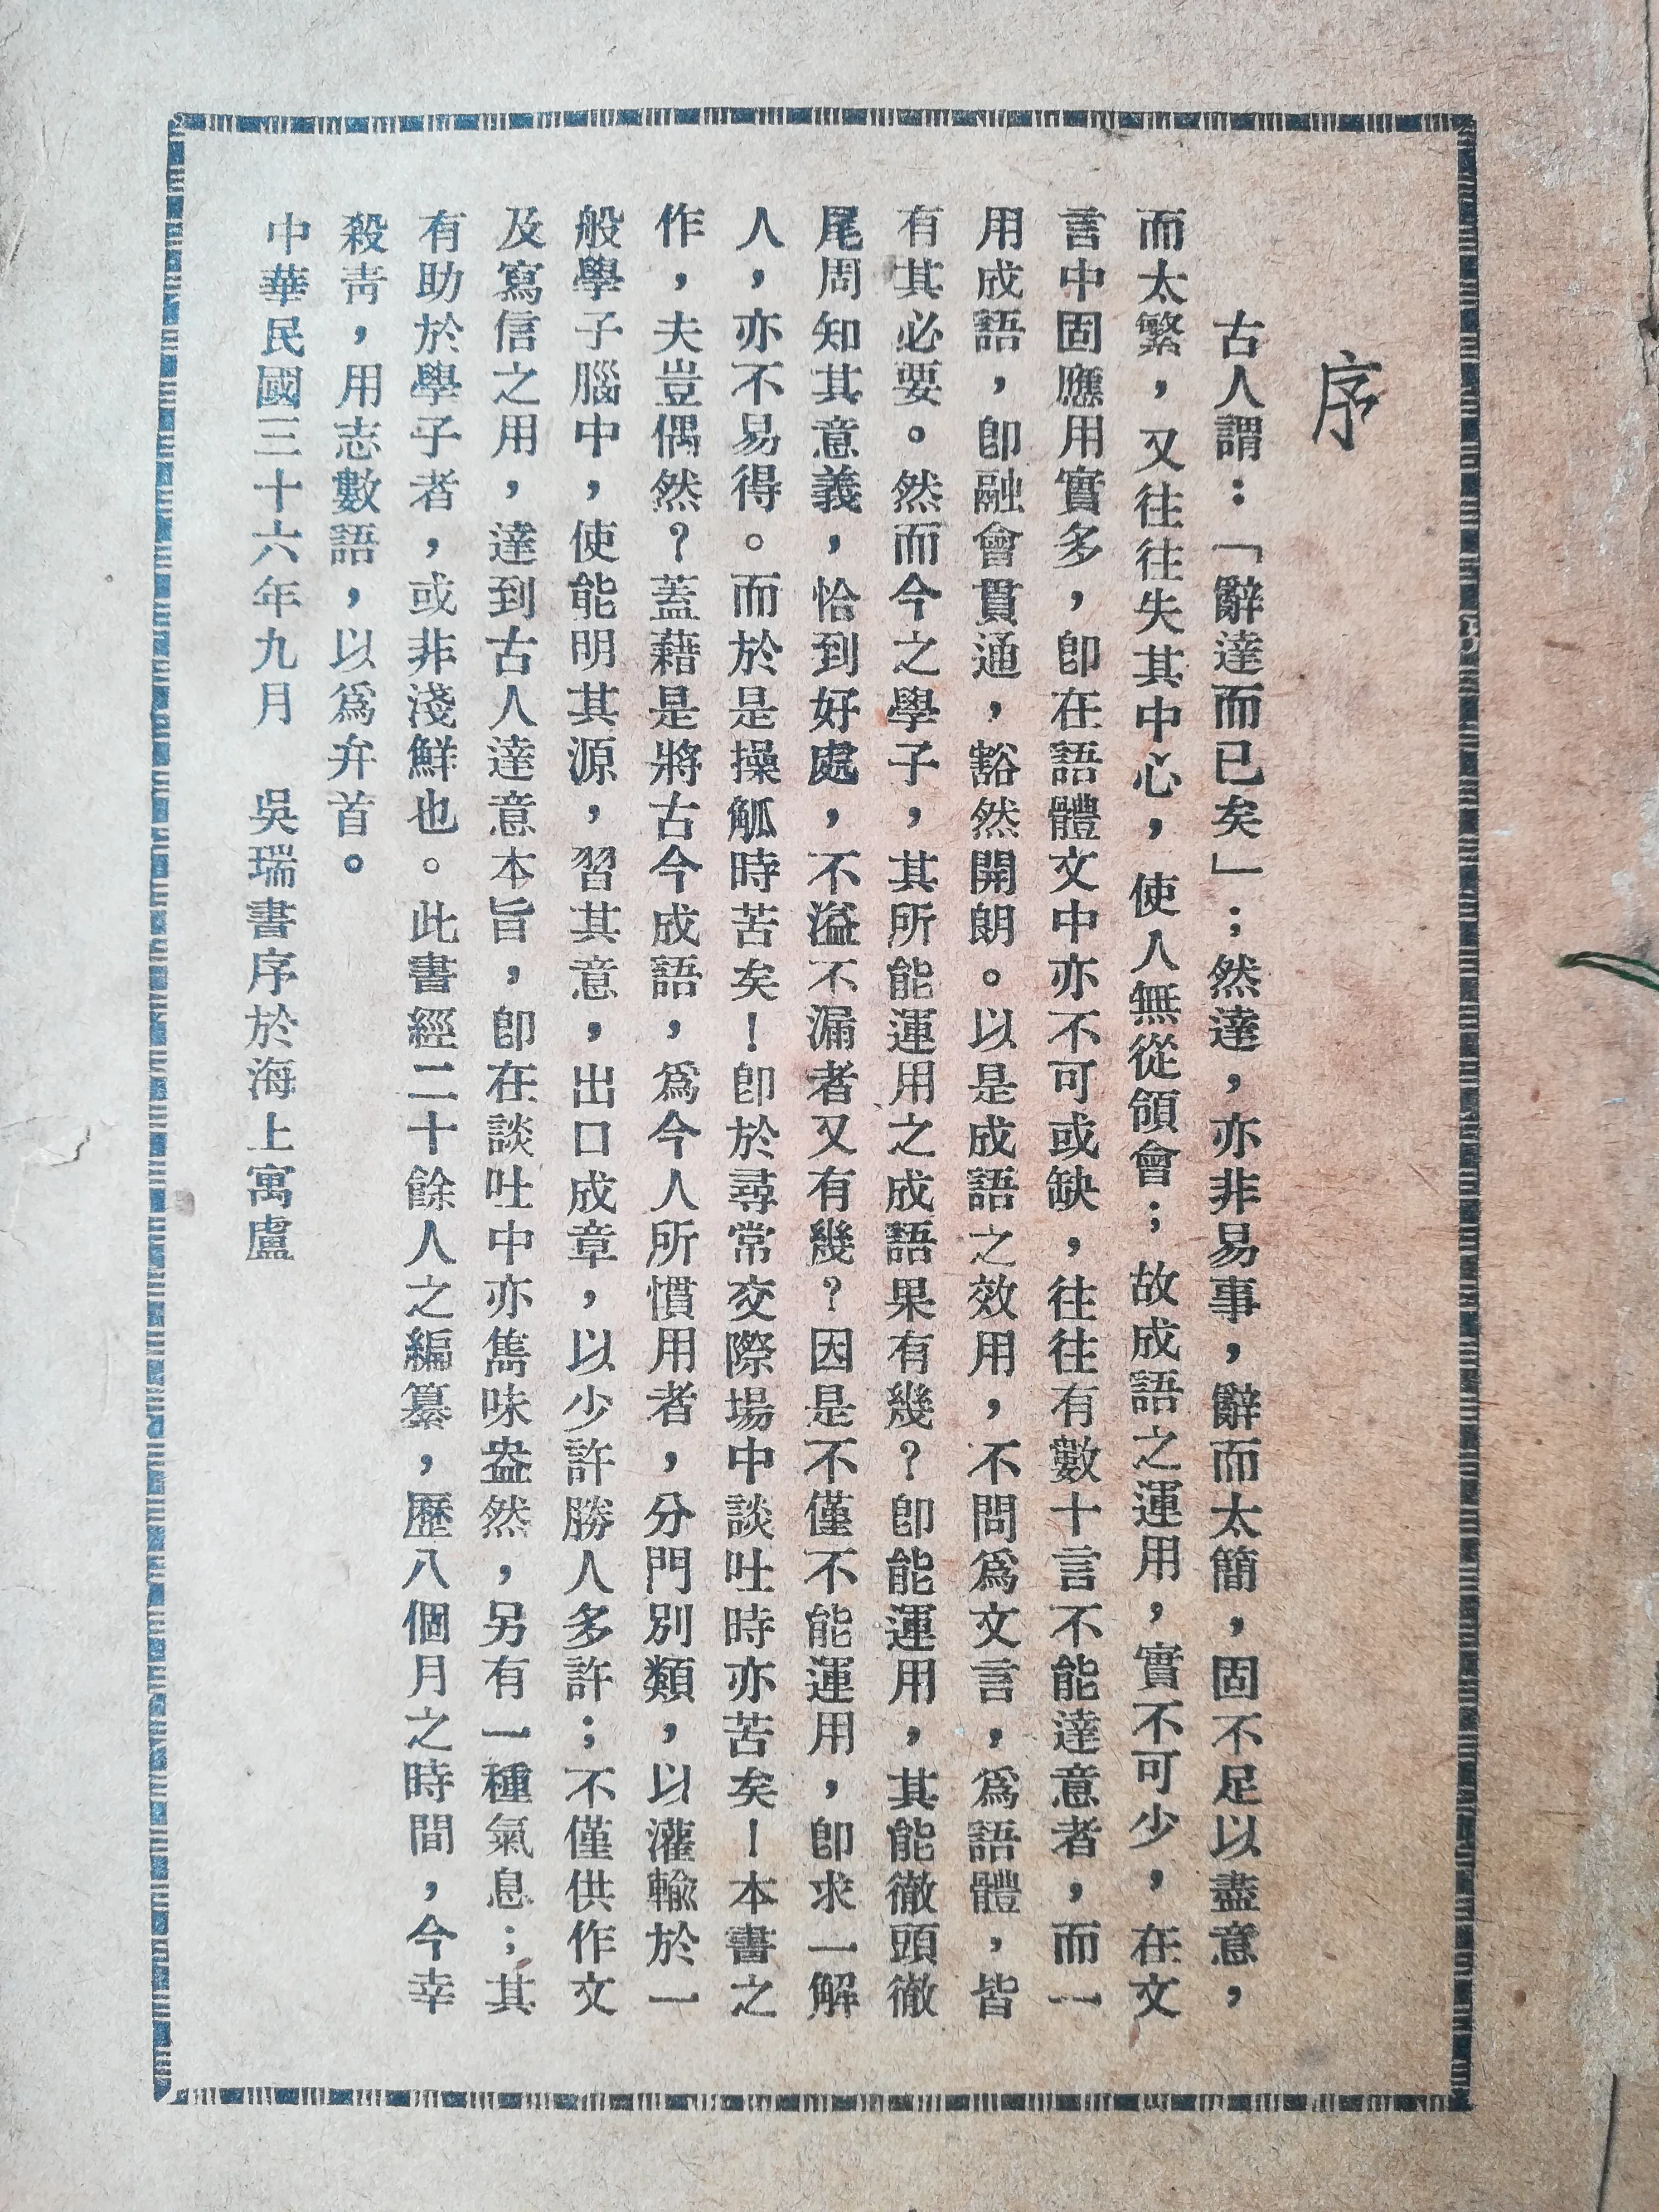 序
古人謂：「辭達而已矣」；然達，亦非易事，辭而太簡，固不足以盡意，
而太繁，又往往失其中心，使人無從領會；故成語之運用，實不可少，在文
言中固應用實多，卽在語體文中亦不可或缺，往往有數十言不能達意者，而一
用成語，卽融會貫通，豁然開朗。以是成語之效用，不問爲文言，爲語體，皆
有其必要。然而今之學子，其所能運用之成語果有幾？卽能運用，其能徹頭徹
尾周知其意義，恰到好處，不溢不漏者又有幾？因是不僅不能運用，卽求一解
人，亦不易得。而於是操觚時苦矣！卽於尋常交際場中談吐時亦苦矣！本書之
作，夫豈偶然？蓋藉是將古今成語，爲今人所慣用者，分門別類，以灌輸於一
般學子腦中，使能明其源，習其意，出口成章，以少許勝人多許；不僅供作文
及寫信之用，達到古人達意本旨，卽在談吐中亦雋味盎然，另有一種氣息；其
有助於學子者，或非淺鮮也。此書經二十餘人之編纂，歷八個月之時間，今幸
殺靑，用志數語，以爲弁首。
中華民國三十六年九月　吳瑞書序於海上寓盧